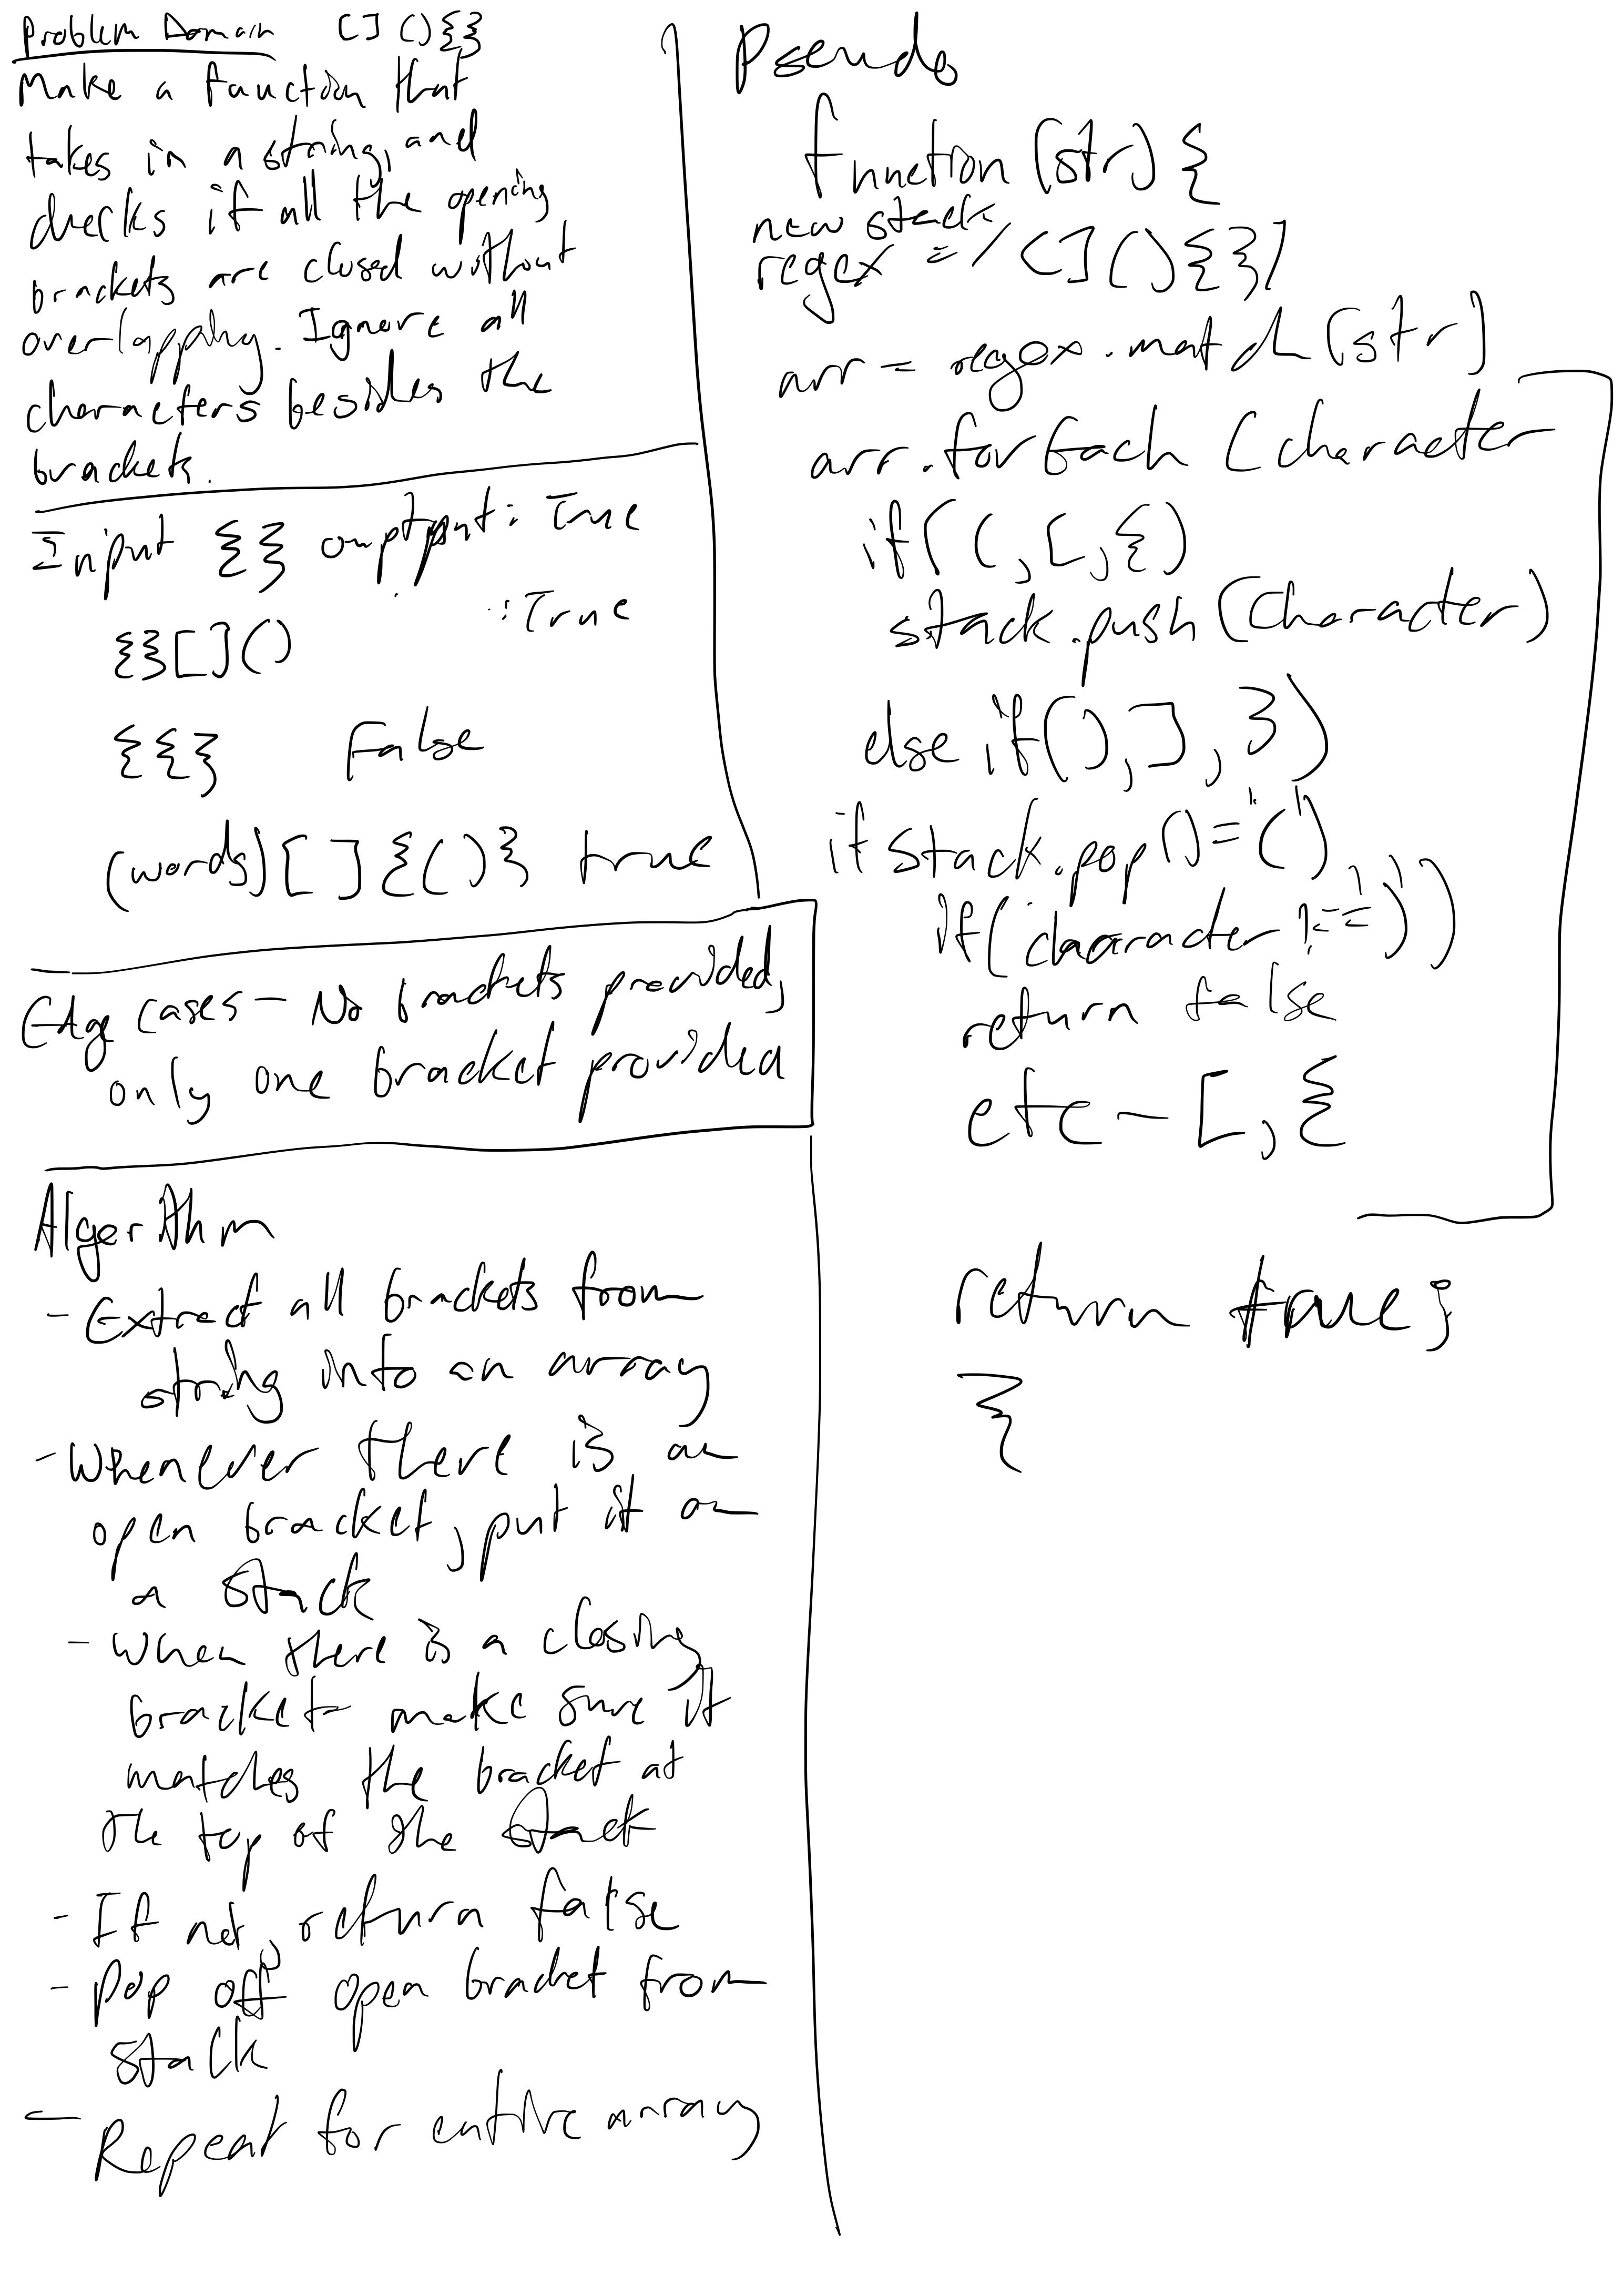 Problem Domain [] () {}
Make a function that
takes in a string, and
checks if all the opening
brackets are closed without
overlapping. Ignore all
characters besides the
brackets.
Input {} output: True
{}[]() : True
{{} False
(words)[]{()} true
Edge cases - No brackets provided,
only one bracket provided
Algorithm
- Extract all brackets from
string into an array
- Whenever there is an
open bracket, put it on
a stack
- When there is a closing
bracket make sure it
matches the bracket at
the top of the stack
- If not, return false
- Pop off open bracket from
stack
- Repeat for entire array
Pseudo
function (str) {
new stack
regex = /[](){}/
arr = regex.match(str)
arr.forEach (character
if( (, [, {)
stack.push(character)
else if( ), ], })
if stack.pop() = '('
if(character !== ')')
return false
etc - [, {
return true;
}